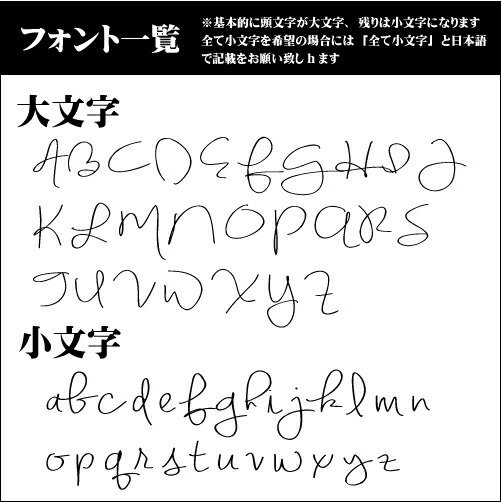 フォント一覧
※基本的に頭文字が大文字、残りは小文字になります
全て小文字を希望の場合には「全て小文字」と日本語
で記載をお願い致しhます
大文字
ABCDEFGHIJ
KLMNOPQRS
TUVWXYZ
小文字
abcdefghijklmn
opqrstuvwxyz